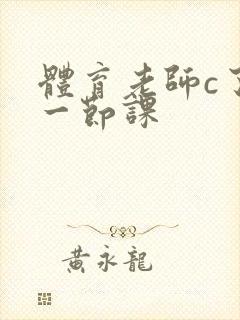 體育老師c了
一節課
黃永龍